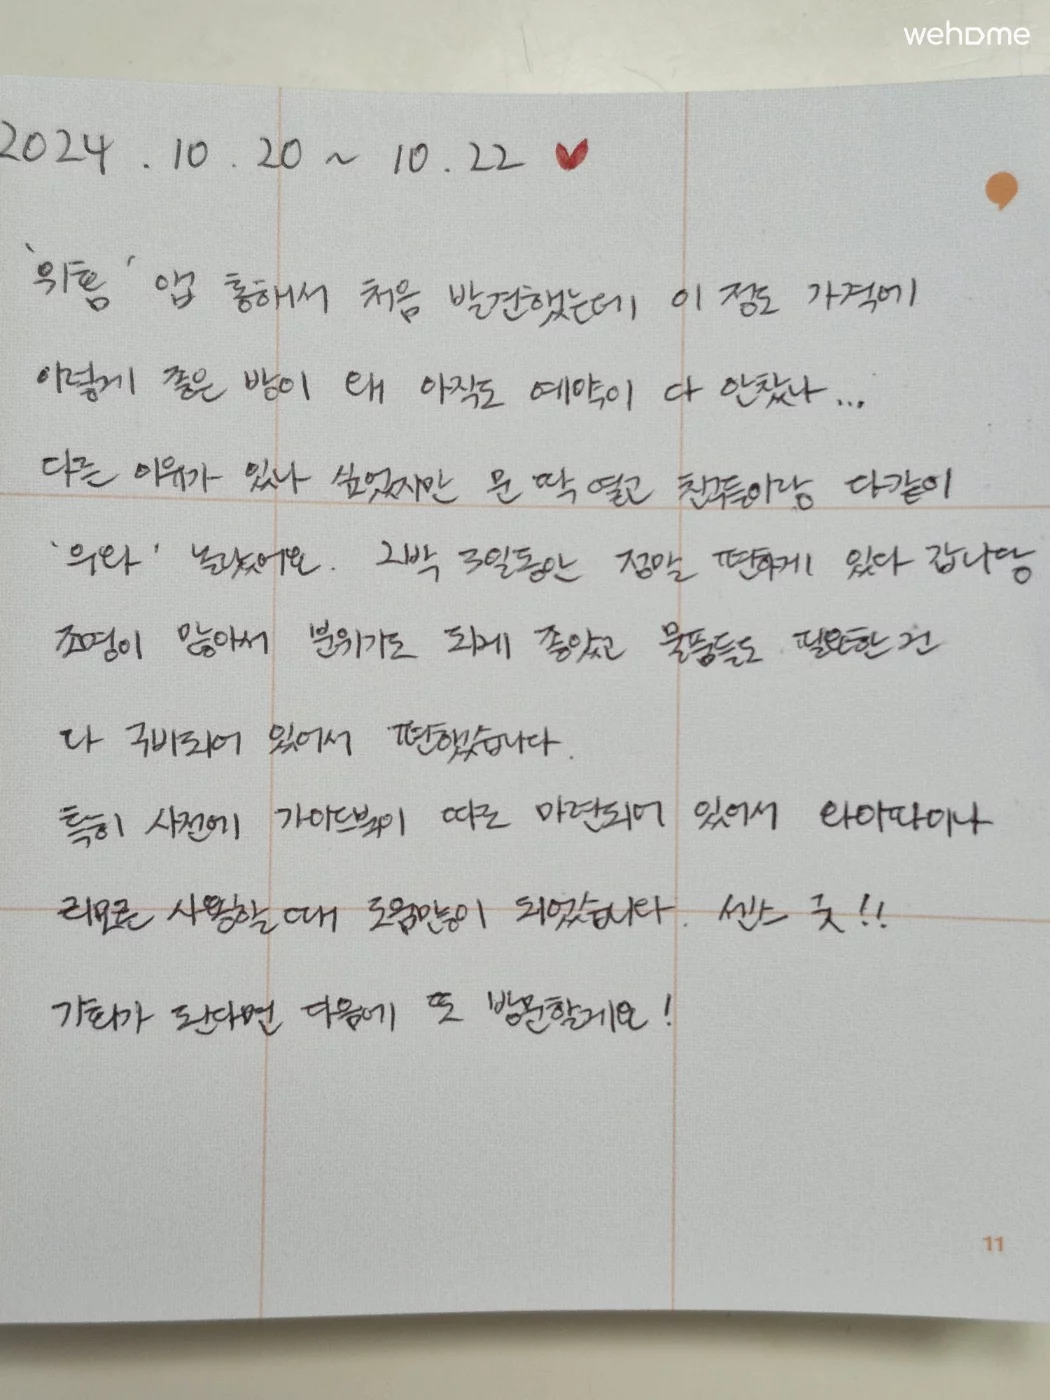 wehome
2024.10.20 ~ 10.22
'위홈' 앱 통해서 처음 발견했는데 이 정도 가격에
이렇게 좋은 방이 왜 아직도 예약이 다 안찼나...
다른 이유가 있나 싶었지만 문 딱 열고 친구들이랑 다같이
'우와' 놀랐어요. 2박 3일동안 정말 편하게 있다 갑니당
조명이 많아서 분위기도 되게 좋았고 물품들도 필요한 건
다 구비되어 있어서 편했습니다.
특히 사전에 가이드북이 따로 마련되어 있어서 와이파이나
리모콘 사용할 때 도움많이 되었습니다. 센스 굿!!
기회가 된다면 다음에 또 방문할게요!
11